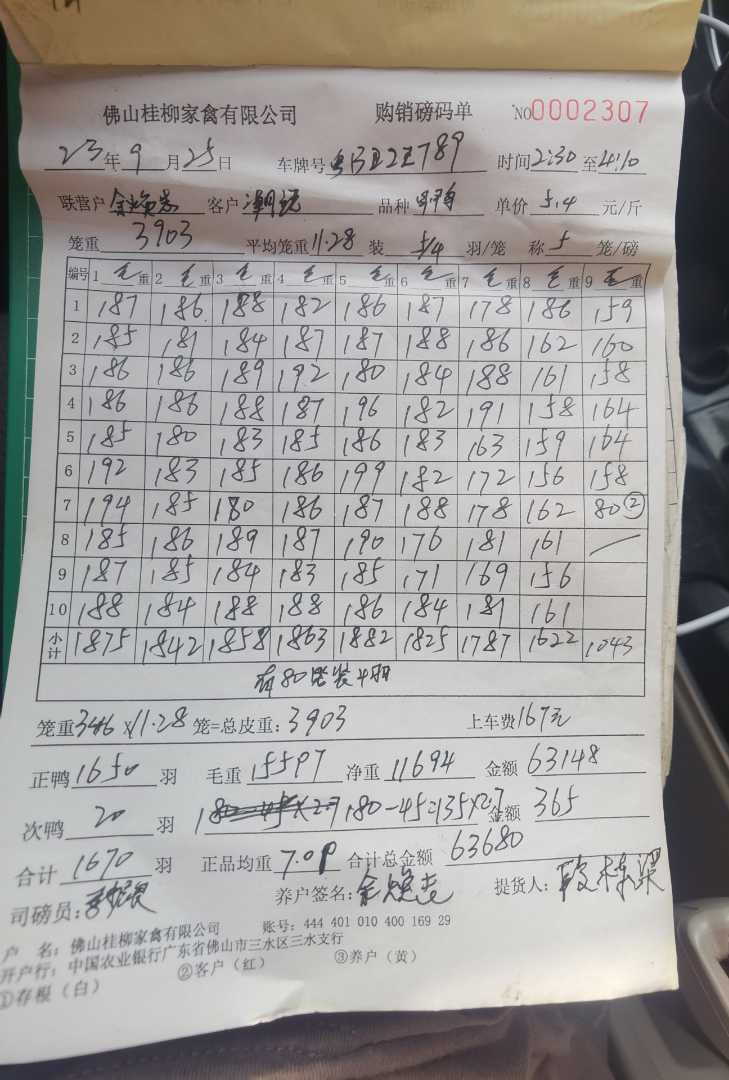 佛山桂柳家禽有限公司 购销磅码单 NO0002307
23年9月25日 车牌号 789 时间2:30至4:10
联营户 客户 品种 单价5.4元/斤
笼重3903 平均笼重11.28 装5/4羽/笼 称5笼/磅
编号 1毛重 2毛重 3毛重 4毛重 5毛重 6毛重 7毛重 8毛重 9毛重
1 187 186 188 182 186 187 178 186 159
2 185 181 184 187 187 188 186 162 160
3 186 186 189 192 180 184 188 161 158
4 186 186 188 187 196 182 191 158 164
5 185 180 183 185 186 183 163 159 164
6 192 183 185 186 199 182 172 156 158
7 194 185 180 186 187 188 178 162 80②
8 185 186 189 187 190 176 181 161
9 187 185 184 183 185 171 169 156
10 188 184 188 188 186 184 181 161
小计 1875 1842 1858 1863 1882 1825 1787 1622 1043
有80笼装4羽
笼重346×11.28笼=总皮重:3903 上车费167元
正鸭1650羽 毛重15597 净重11694 金额63148
次鸭20羽 180-45=135×2.7 金额365
合计1670羽 正品均重7.09 合计总金额63680
司磅员: 养户签名: 提货人:
户 名:佛山桂柳家禽有限公司 账号:444 401 010 400 169 29
开户行:中国农业银行广东省佛山市三水区三水支行
①存根(白) ②客户(红) ③养户(黄)